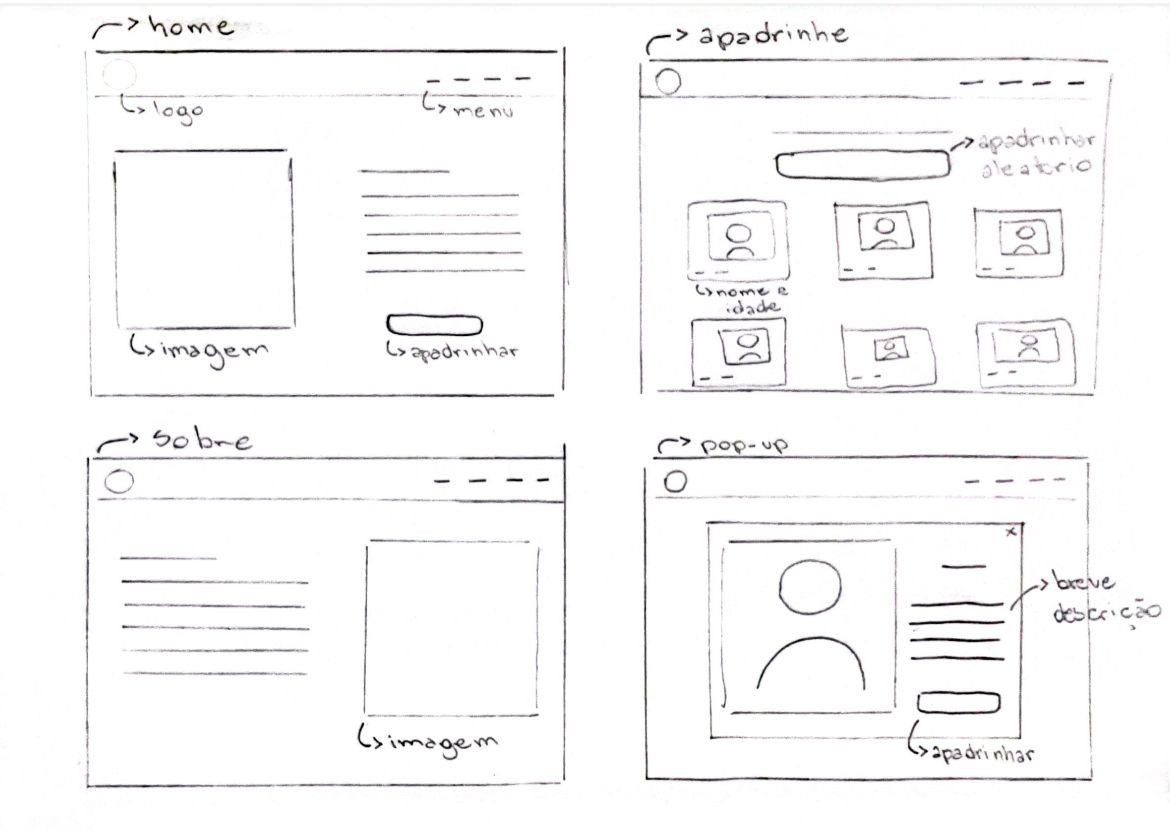 home
logo
menu
imagem
apadrinhar
apadrinhe
apadrinhar
aleatorio
nome e
idade
sobre
imagem
pop-up
x
breve
descrição
apadrinhar